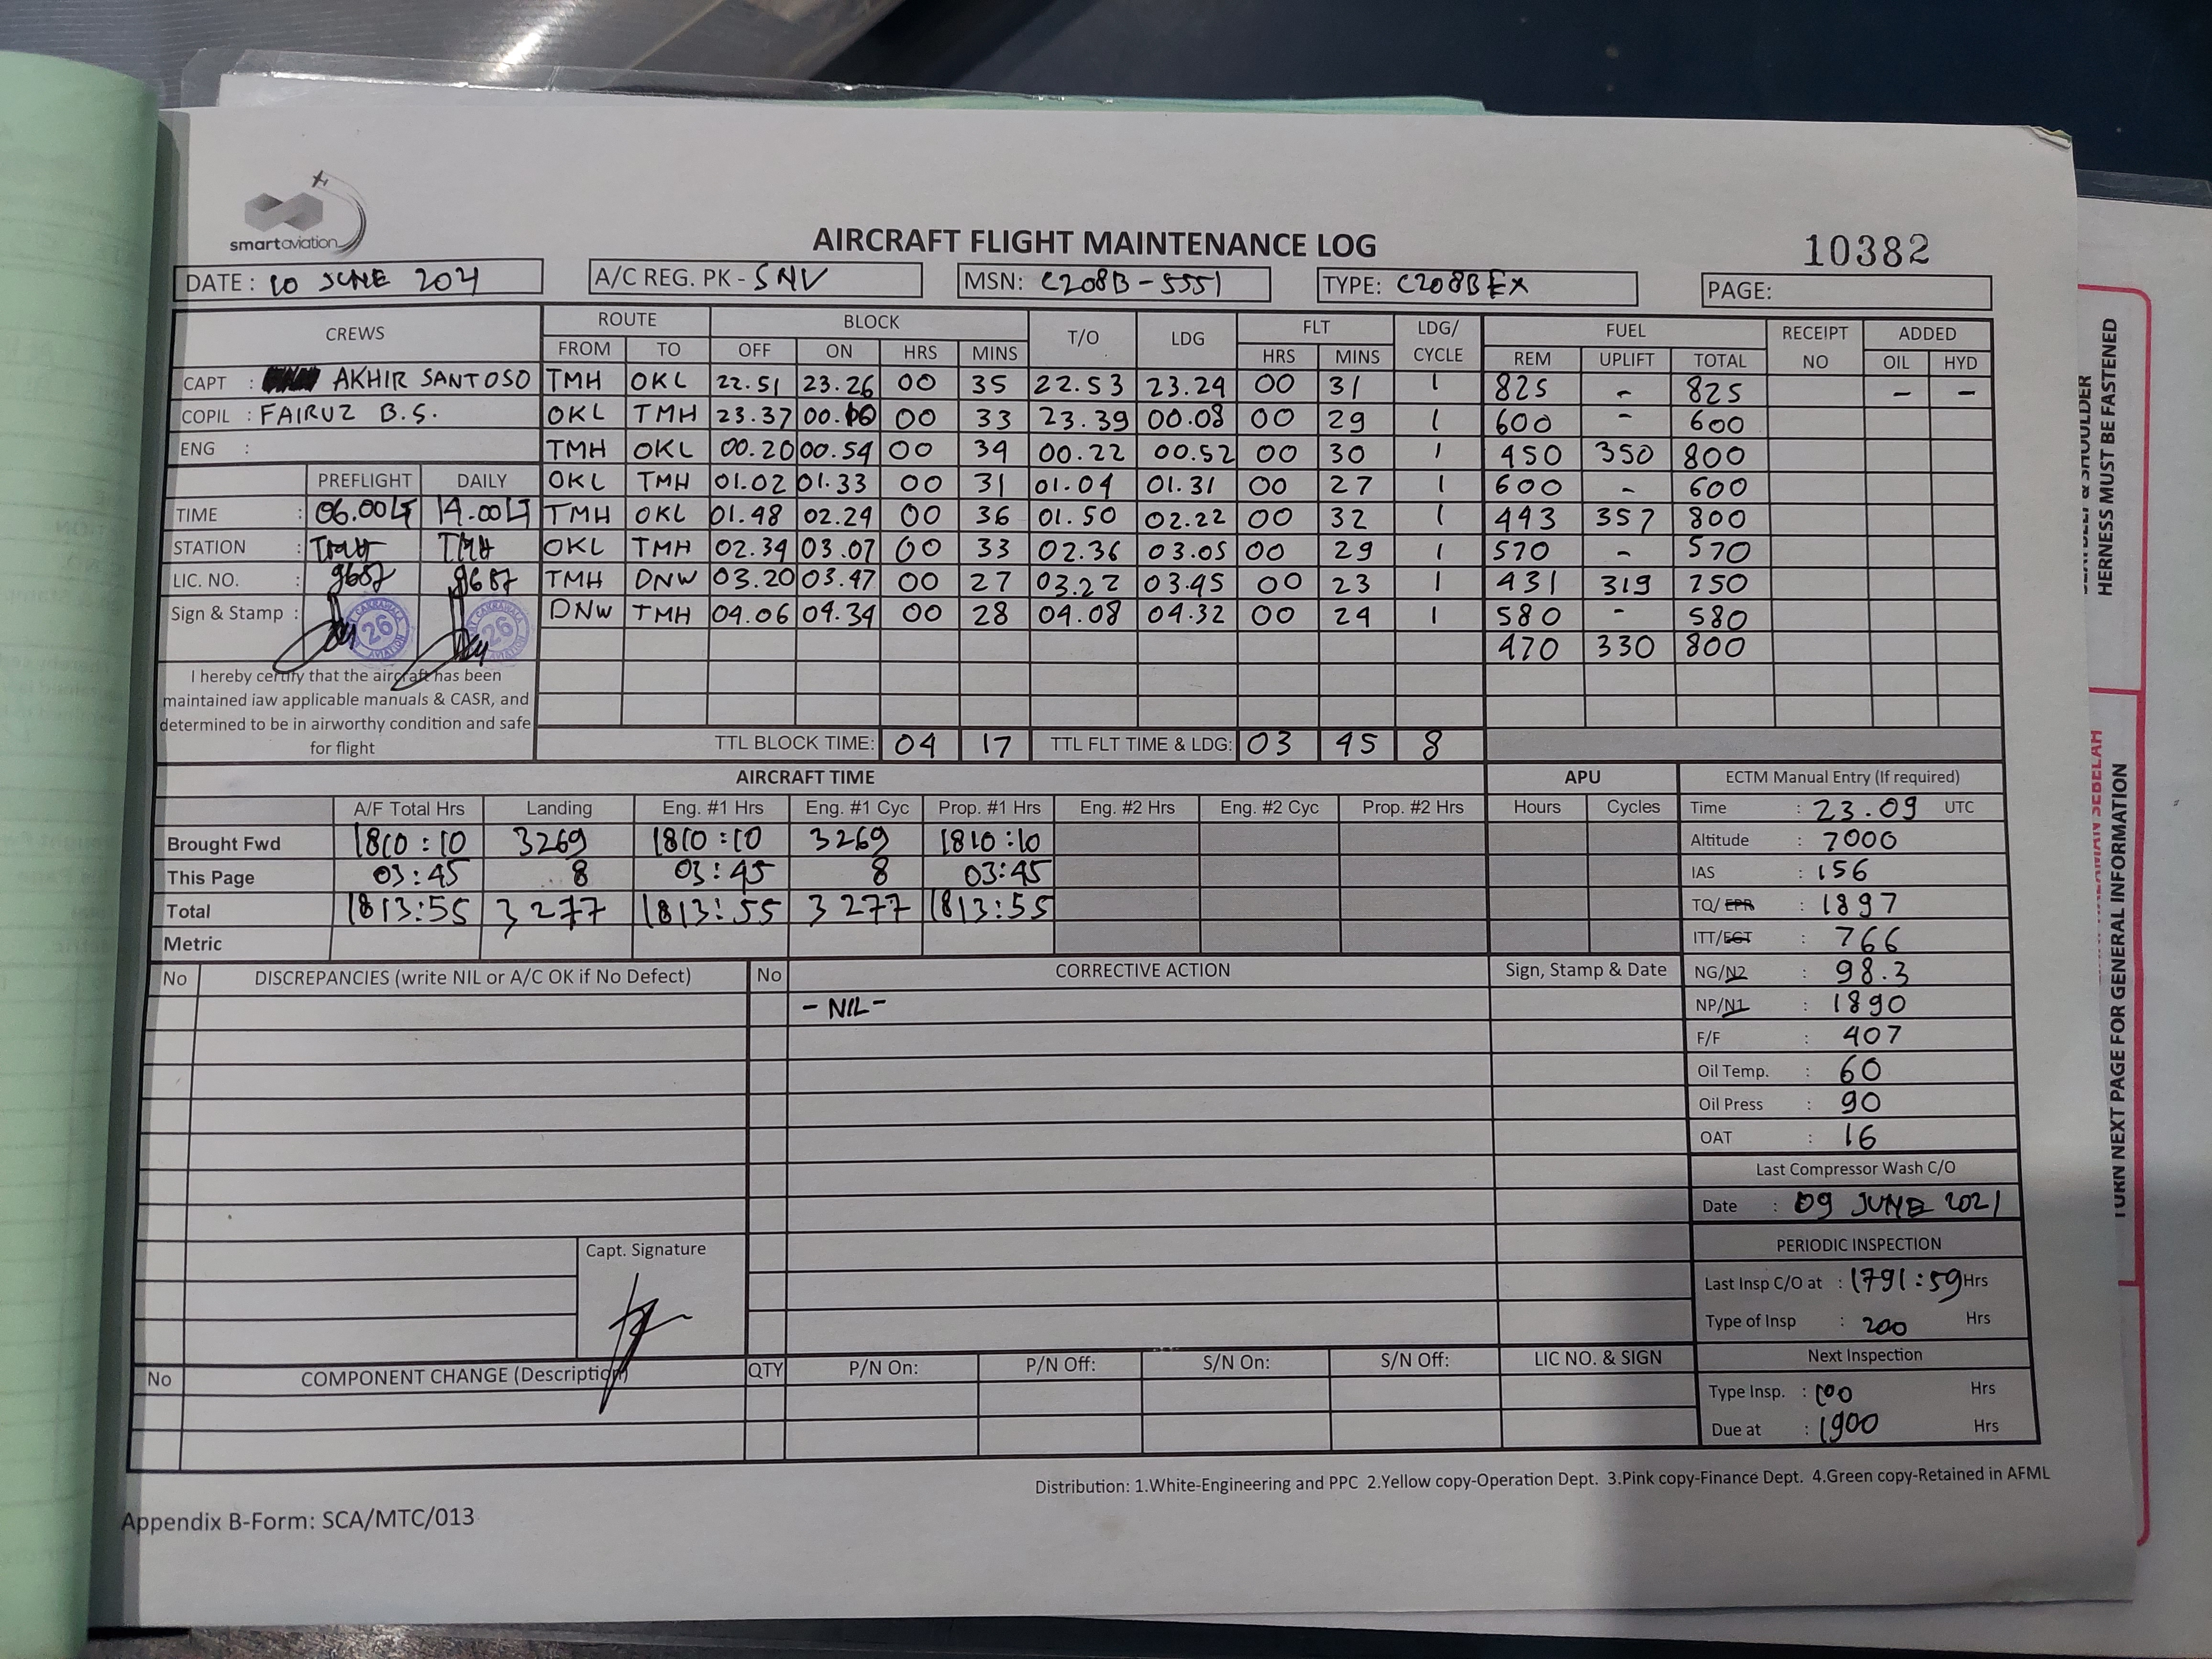 smartaviation
AIRCRAFT FLIGHT MAINTENANCE LOG
10382
DATE : 10 JUNE 2021 A/C REG. PK - SNV MSN: C208B - 5551 TYPE: C208B EX PAGE:
CREWS ROUTE BLOCK T/O LDG FLT LDG/ CYCLE FUEL RECEIPT NO ADDED
FROM TO OFF ON HRS MINS HRS MINS REM UPLIFT TOTAL OIL HYD
CAPT : AKHIR SANTOSO TMH OKL 22.51 23.26 00 35 22.53 23.24 00 31 1 825 - 825 - -
COPIL : FAIRUZ B.S. OKL TMH 23.37 00.10 00 33 23.39 00.08 00 29 1 600 - 600
ENG : TMH OKL 00.20 00.54 00 34 00.22 00.52 00 30 1 450 350 800
PREFLIGHT DAILY OKL TMH 01.02 01.33 00 31 01.04 01.31 00 27 1 600 - 600
TIME : 06.00LT 14.00LT TMH OKL 01.48 02.24 00 36 01.50 02.22 00 32 1 443 357 800
STATION : TMH TMH OKL TMH 02.34 03.07 00 33 02.36 03.05 00 29 1 570 - 570
LIC. NO. : 9687 9687 TMH DNW 03.20 03.47 00 27 03.22 03.45 00 23 1 431 319 750
Sign & Stamp : 26 26 DNW TMH 04.06 04.34 00 28 04.08 04.32 00 24 1 580 - 580
470 330 800
I hereby certify that the aircraft has been
maintained iaw applicable manuals & CASR, and
determined to be in airworthy condition and safe
for flight
TTL BLOCK TIME: 04 17 TTL FLT TIME & LDG: 03 45 8
AIRCRAFT TIME APU ECTM Manual Entry (If required)
A/F Total Hrs Landing Eng. #1 Hrs Eng. #1 Cyc Prop. #1 Hrs Eng. #2 Hrs Eng. #2 Cyc Prop. #2 Hrs Hours Cycles Time : 23.09 UTC
Brought Fwd 1810:10 3269 1810:10 3269 1810:10 Altitude : 7000
This Page 03:45 8 03:45 8 03:45 IAS : 156
Total 1813:55 3277 1813:55 3277 1813:55 TQ/EPR : 1897
Metric ITT/EGT : 766
No DISCREPANCIES (write NIL or A/C OK if No Defect) No CORRECTIVE ACTION Sign, Stamp & Date NG/N2 : 98.3
- NIL - NP/N1 : 1890
F/F : 407
Oil Temp. : 60
Oil Press : 90
OAT : 16
Last Compressor Wash C/O
Date : 09 JUNE 2021
Capt. Signature
PERIODIC INSPECTION
Last Insp C/O at : 1791:59 Hrs
Type of Insp : 200 Hrs
No COMPONENT CHANGE (Description) QTY P/N On: P/N Off: S/N On: S/N Off: LIC NO. & SIGN Next Inspection
Type Insp. : 100 Hrs
Due at : 1900 Hrs
Distribution: 1.White-Engineering and PPC 2.Yellow copy-Operation Dept. 3.Pink copy-Finance Dept. 4.Green copy-Retained in AFML
Appendix B-Form: SCA/MTC/013
HERNESS MUST BE FASTENED
TURN NEXT PAGE FOR GENERAL INFORMATION